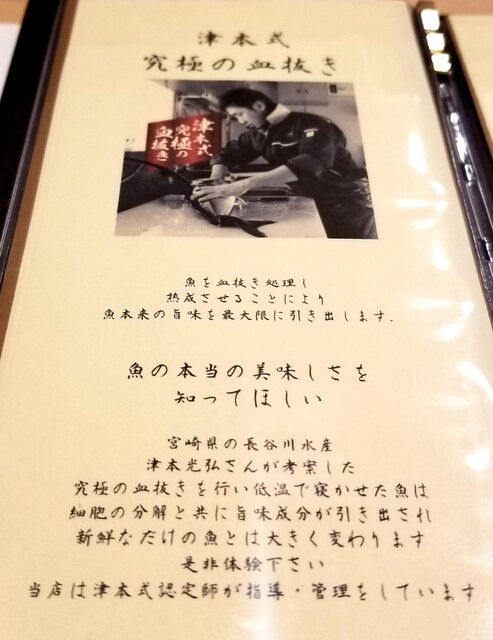 津本式
究極の血抜き
津本式
究極の
血抜き
魚を血抜き処理し
熟成させることにより
魚本来の旨味を最大限に引き出します.
魚の本当の美味しさを
知ってほしい
宮崎県の長谷川水産
津本光弘さんが考案した
究極の血抜きを行い低温で寝かせた魚は
細胞の分解と共に旨味成分が引き出され
新鮮なだけの魚とは大きく変わります
是非体験下さい
当店は津本式認定師が指導・管理をしています